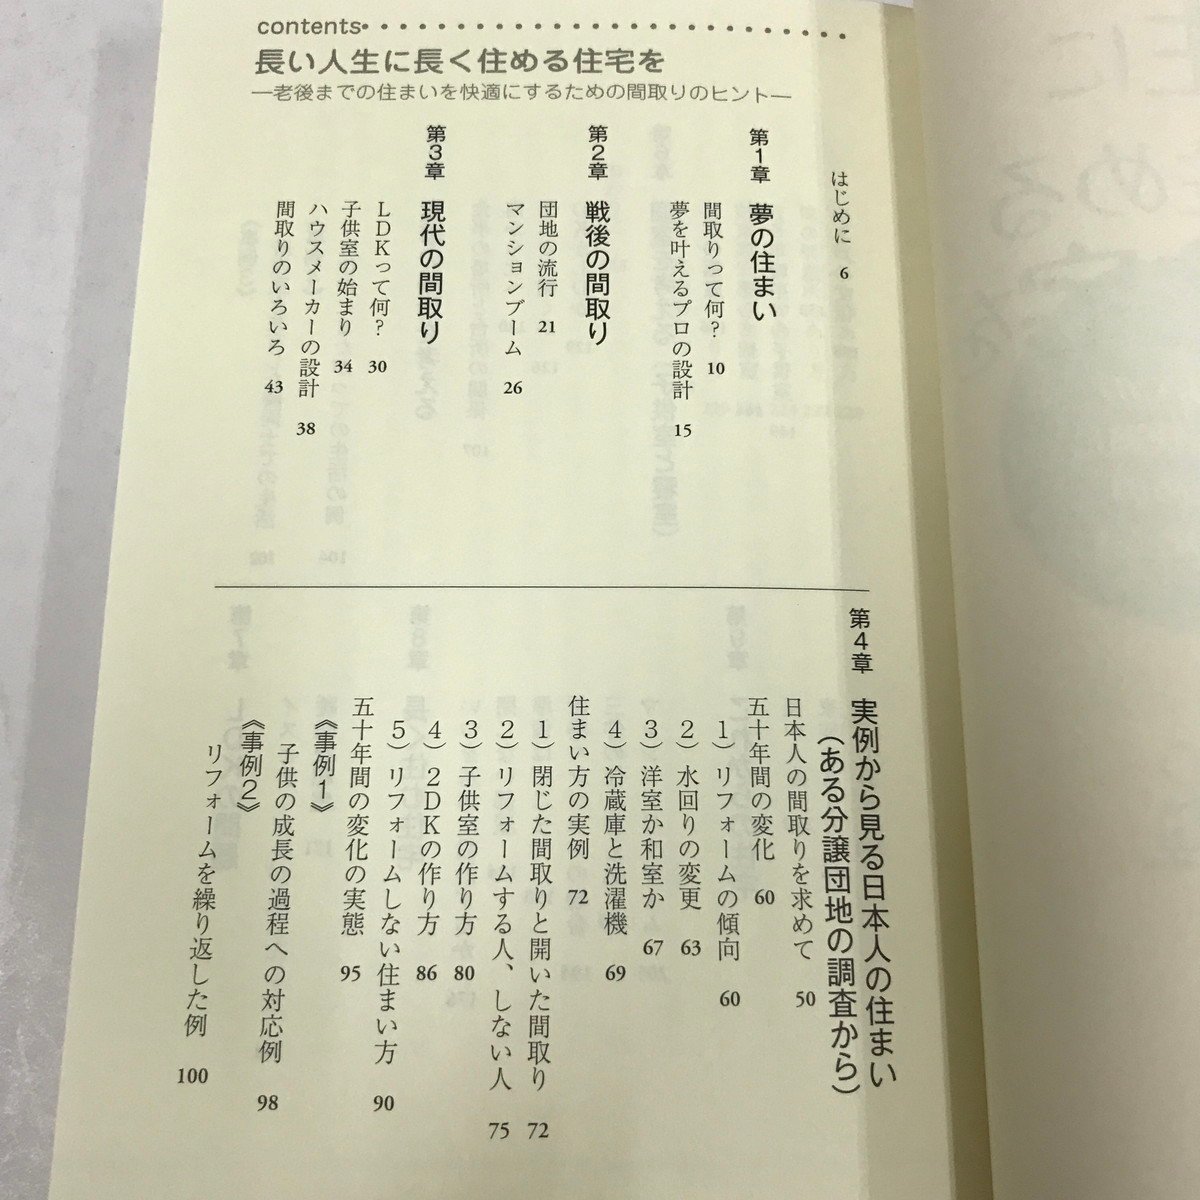 contents
長い人生に長く住める住宅を
―老後までの住まいを快適にするための間取りのヒント―
はじめに 6
第1章 夢の住まい
間取りって何？ 10
夢を叶えるプロの設計 15
第2章 戦後の間取り
団地の流行 21
マンションブーム 26
第3章 現代の間取り
LDKって何？ 30
子供室の始まり 34
ハウスメーカーの設計 38
間取りのいろいろ 43
第4章 実例から見る日本人の住まい
（ある分譲団地の調査から）
日本人の間取りを求めて 50
五十年間の変化 60
1）リフォームの傾向 60
2）水回りの変更 63
3）洋室か和室か 67
4）冷蔵庫と洗濯機 69
住まい方の実例 72
1）閉じた間取りと開いた間取り 72
2）リフォームする人、しない人 75
3）子供室の作り方 80
4）2DKの作り方 86
5）リフォームしない住まい方 90
五十年間の変化の実態 95
《事例1》
子供の成長の過程への対応例 98
《事例2》
リフォームを繰り返した例 100